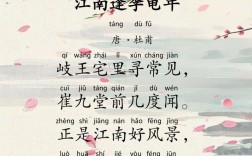 江南逢李龟年
táng dù fǔ
唐·杜甫
qí wáng zhái lǐ xún cháng jiàn
岐王宅里寻常见，
cuī jiǔ táng qián jǐ dù wén
崔九堂前几度闻。
zhèng shì jiāng nán hǎo fēng jǐng
正是江南好风景，
luò huā shí jié yòu féng jūn